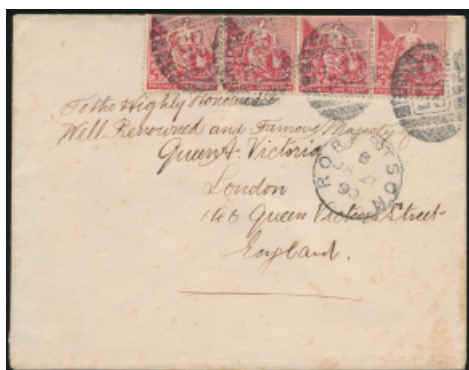 To the Highly Honoured
Well Renowned and Famous Majesty
Queen Victoria
London
146 Queen Victoria Street
England.
ROBERTSON
JA 21
90